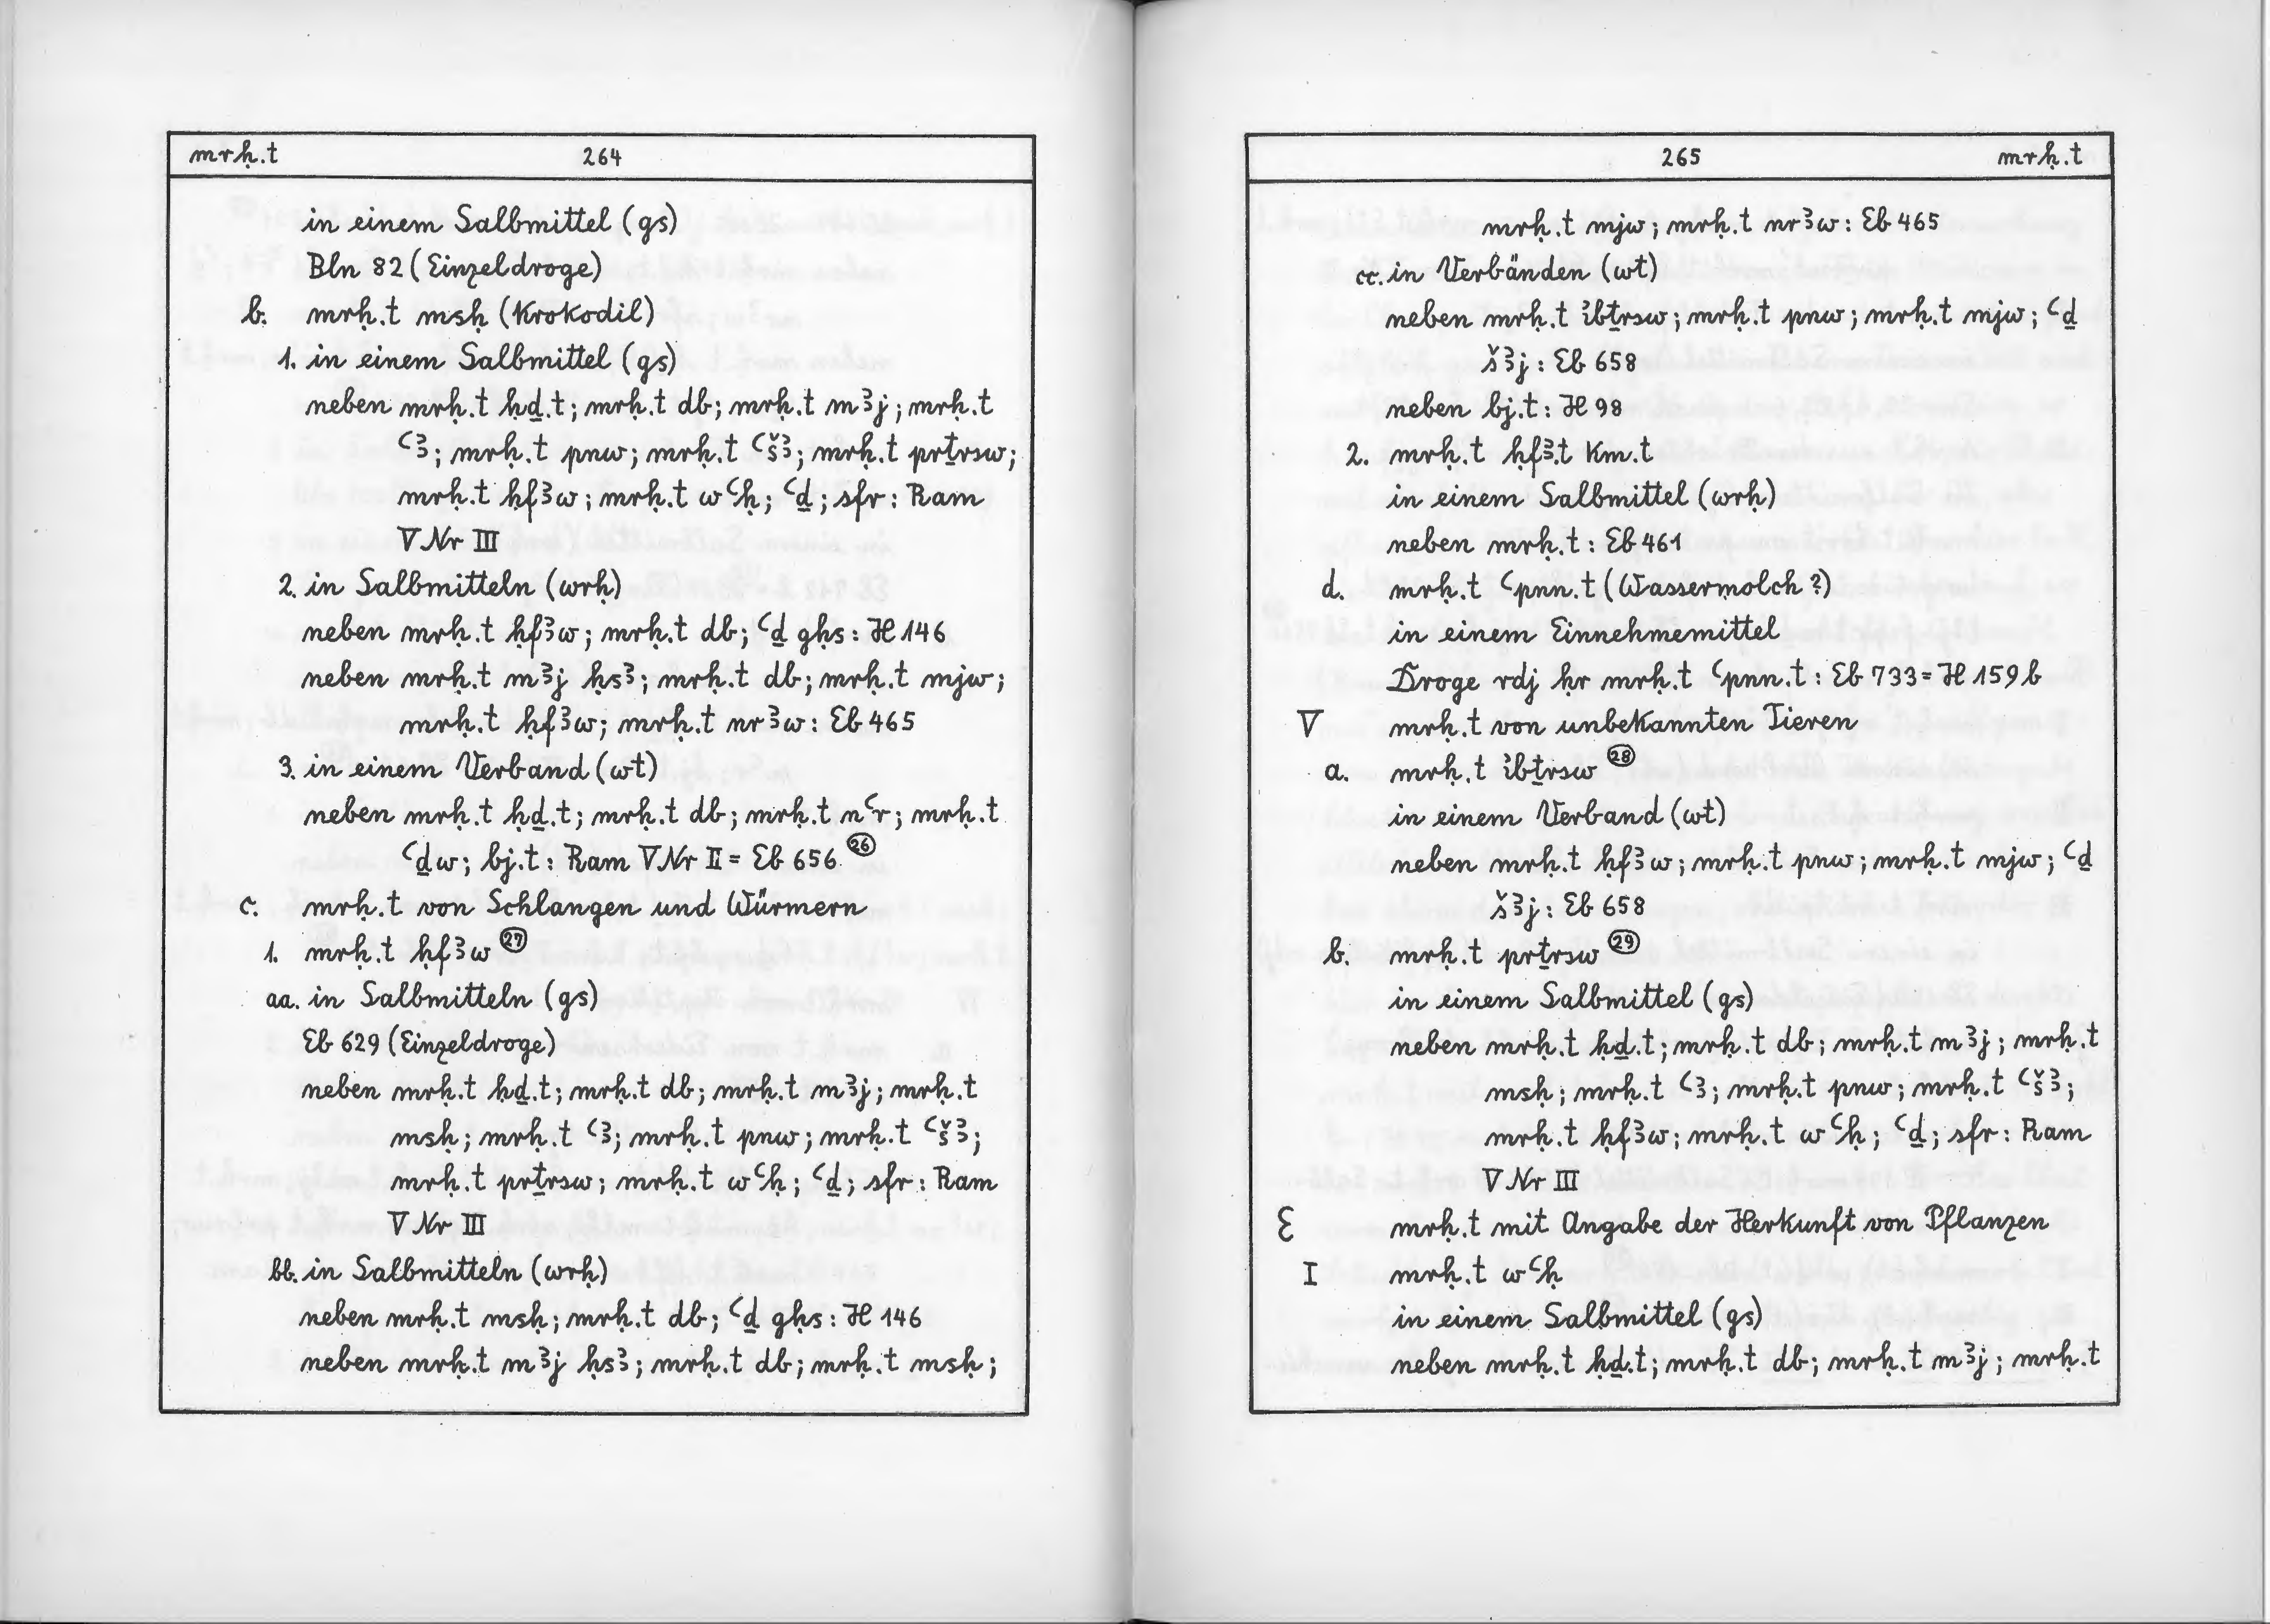 mrḥ.t 264
in einem Salbmittel (gs)
Bln 82 (Einzeldroge)
b. mrḥ.t msḥ (Krokodil)
1. in einem Salbmittel (gs)
neben mrḥ.t ḥḏ.t; mrḥ.t db; mrḥ.t mꜣj; mrḥ.t
ꜥꜣ; mrḥ.t pnw; mrḥ.t ꜥšꜣ; mrḥ.t prṯrsw;
mrḥ.t ḥfꜣw; mrḥ.t wꜥḥ; ꜥḏ; sfr: Ram
V Nr III
2. in Salbmitteln (wrḥ)
neben mrḥ.t ḥfꜣw; mrḥ.t db; ꜥḏ gḥs: H 146
neben mrḥ.t mꜣj ḥsꜣ; mrḥ.t db; mrḥ.t mjw;
mrḥ.t ḥfꜣw; mrḥ.t nrꜣw: Eb 465
3. in einem Verband (wt)
neben mrḥ.t ḥḏ.t; mrḥ.t db; mrḥ.t nꜥr; mrḥ.t
ꜥḏw; bj.t: Ram V Nr II = Eb 656 ㉖
c. mrḥ.t von Schlangen und Würmern
1. mrḥ.t ḥfꜣw ㉗
aa. in Salbmitteln (gs)
Eb 629 (Einzeldroge)
neben mrḥ.t ḥḏ.t; mrḥ.t db; mrḥ.t mꜣj; mrḥ.t
msḥ; mrḥ.t ꜥꜣ; mrḥ.t pnw; mrḥ.t ꜥšꜣ;
mrḥ.t prṯrsw; mrḥ.t wꜥḥ; ꜥḏ; sfr: Ram
V Nr III
bb. in Salbmitteln (wrḥ)
neben mrḥ.t msḥ; mrḥ.t db; ꜥḏ gḥs: H 146
neben mrḥ.t mꜣj ḥsꜣ; mrḥ.t db; mrḥ.t msḥ;
265 mrḥ.t
mrḥ.t mjw; mrḥ.t nrꜣw: Eb 465
cc. in Verbänden (wt)
neben mrḥ.t ἰbṯrsw; mrḥ.t pnw; mrḥ.t mjw; ꜥḏ
šꜣj: Eb 658
neben bj.t: H 98
2. mrḥ.t ḥfꜣ.t km.t
in einem Salbmittel (wrḥ)
neben mrḥ.t: Eb 461
d. mrḥ.t ꜥpnn.t (Wassermolch?)
in einem Einnehmemittel
Droge rdj ḥr mrḥ.t ꜥpnn.t: Eb 733 = H 159 b
V mrḥ.t von unbekannten Tieren
a. mrḥ.t ἰbṯrsw ㉘
in einem Verband (wt)
neben mrḥ.t ḥfꜣw; mrḥ.t pnw; mrḥ.t mjw; ꜥḏ
šꜣj: Eb 658
b. mrḥ.t prṯrsw ㉙
in einem Salbmittel (gs)
neben mrḥ.t ḥḏ.t; mrḥ.t db; mrḥ.t mꜣj; mrḥ.t
msḥ; mrḥ.t ꜥꜣ; mrḥ.t pnw; mrḥ.t ꜥšꜣ;
mrḥ.t ḥfꜣw; mrḥ.t wꜥḥ; ꜥḏ; sfr: Ram
V Nr III
E mrḥ.t mit Angabe der Herkunft von Pflanzen
I mrḥ.t wꜥḥ
in einem Salbmittel (gs)
neben mrḥ.t ḥḏ.t; mrḥ.t db; mrḥ.t mꜣj; mrḥ.t